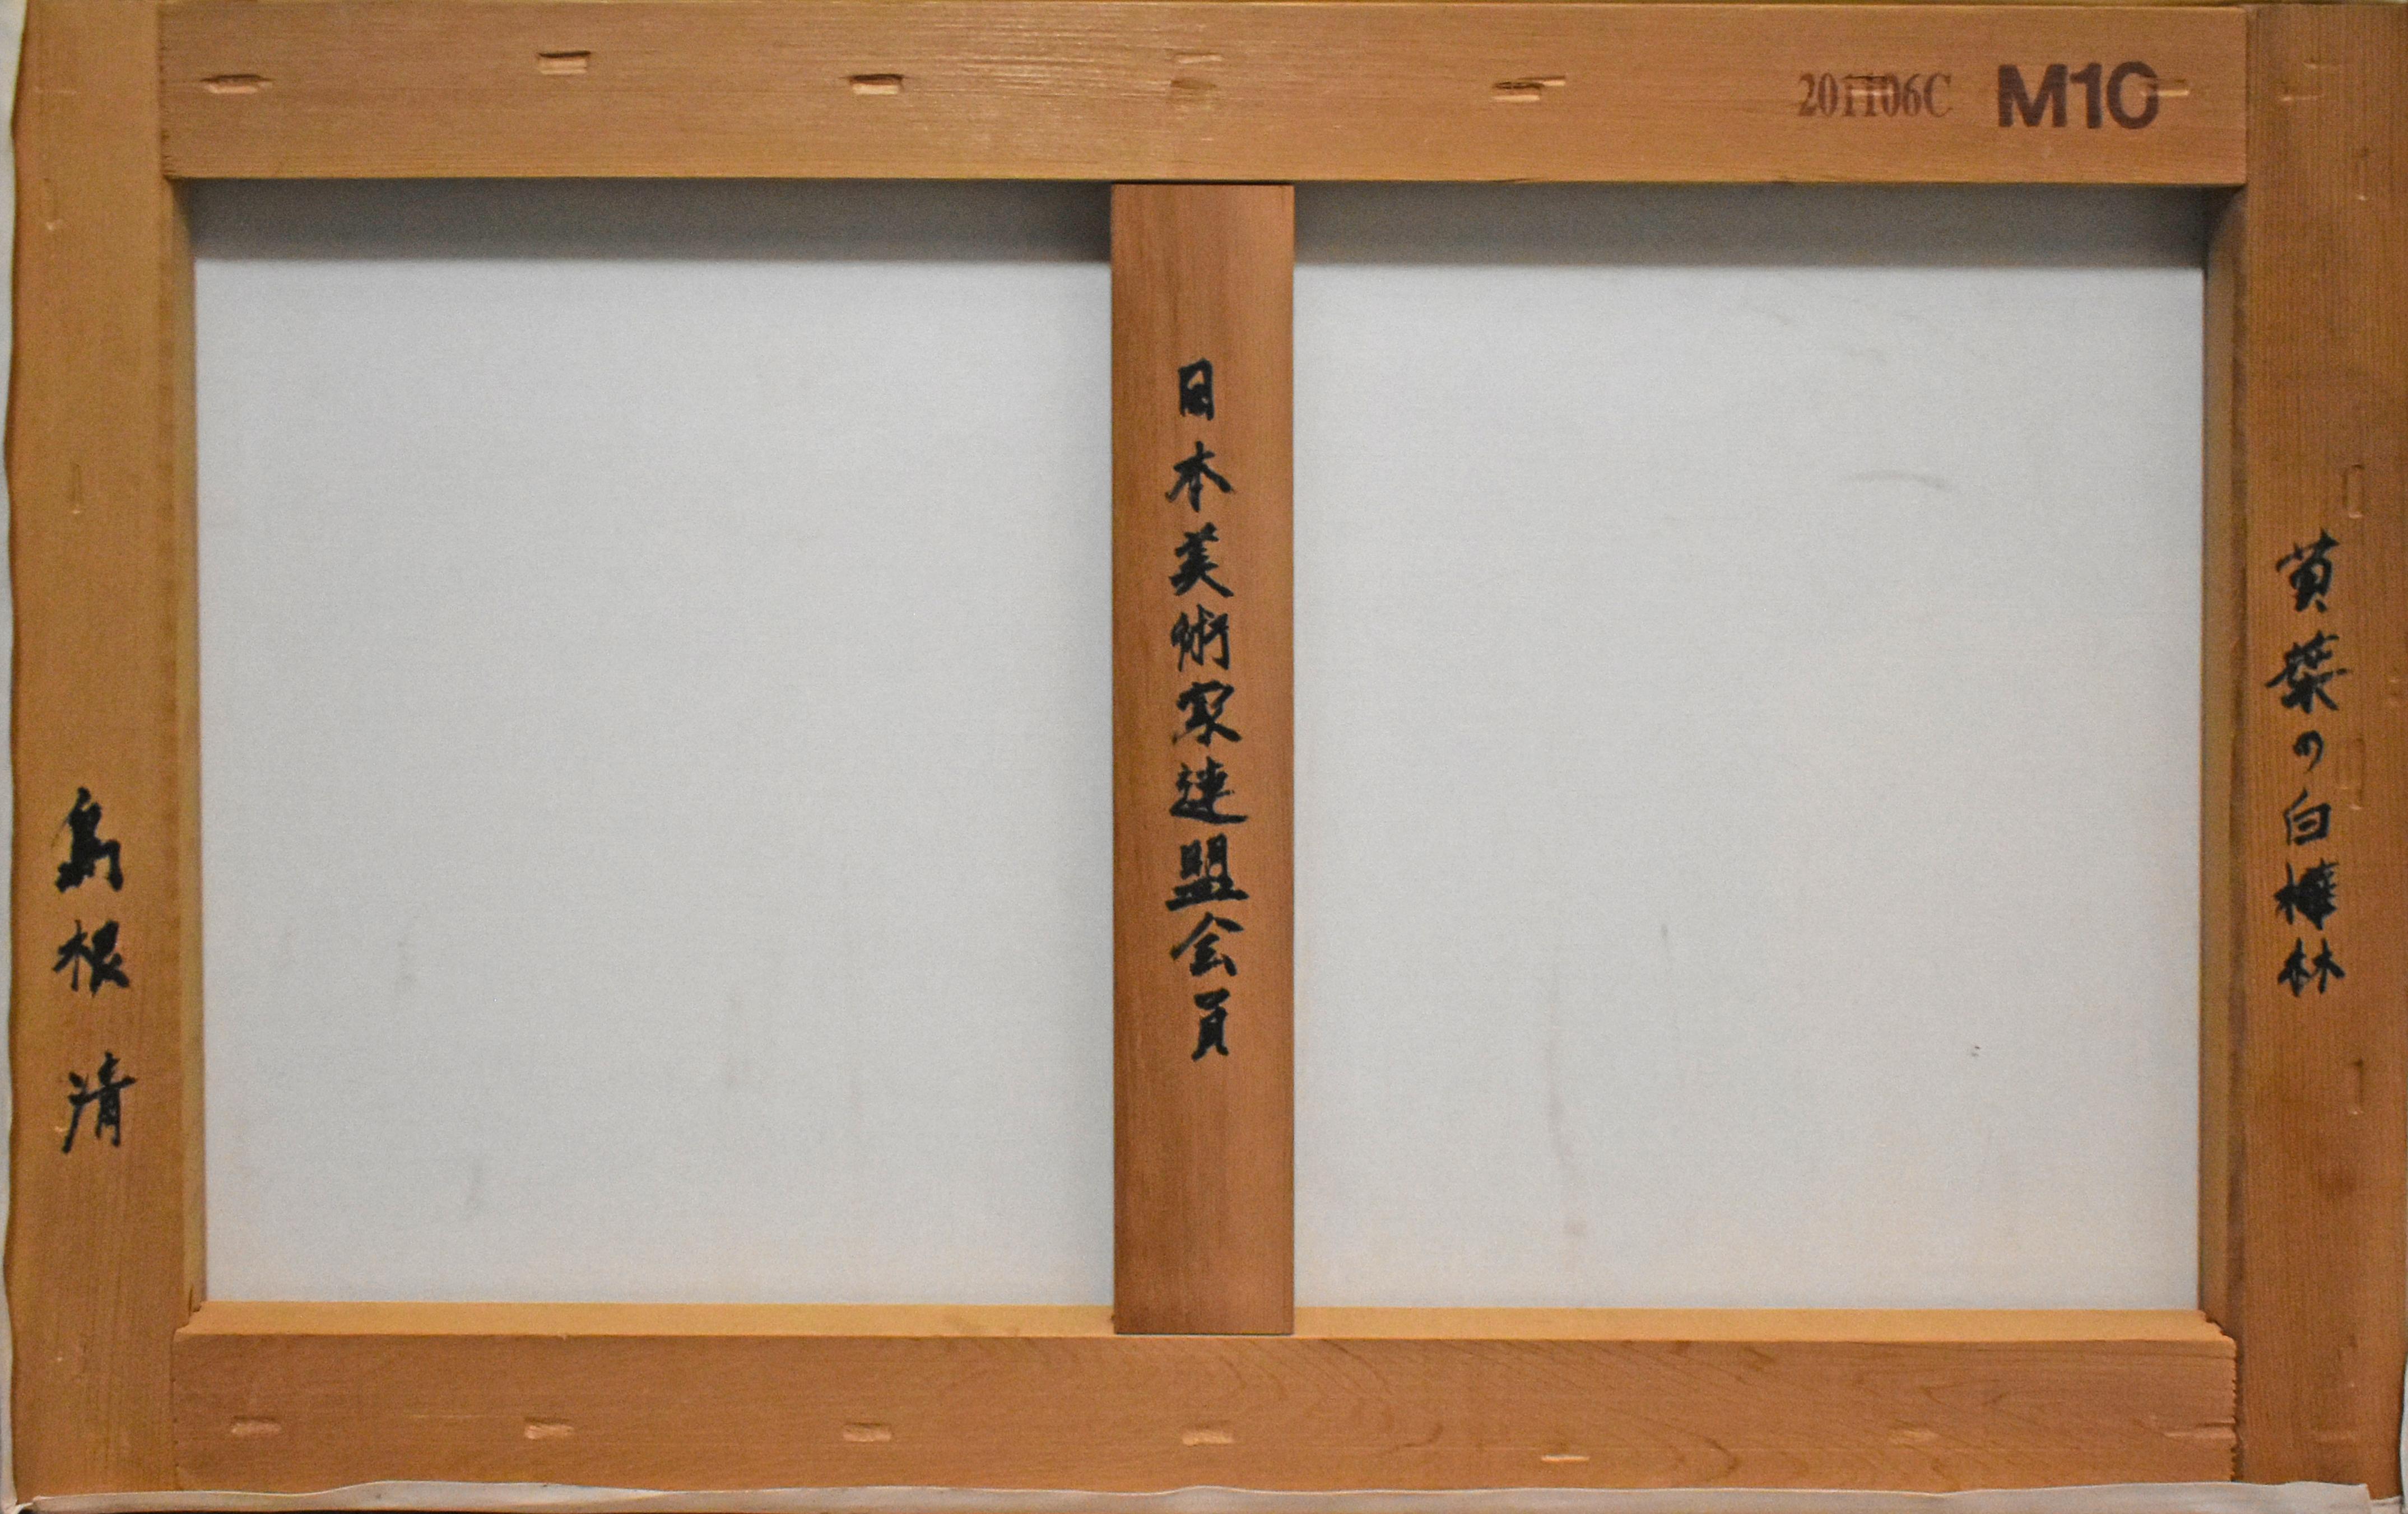 201106C M10
黄葉の白樺林
日本美術家連盟会員
島根 清